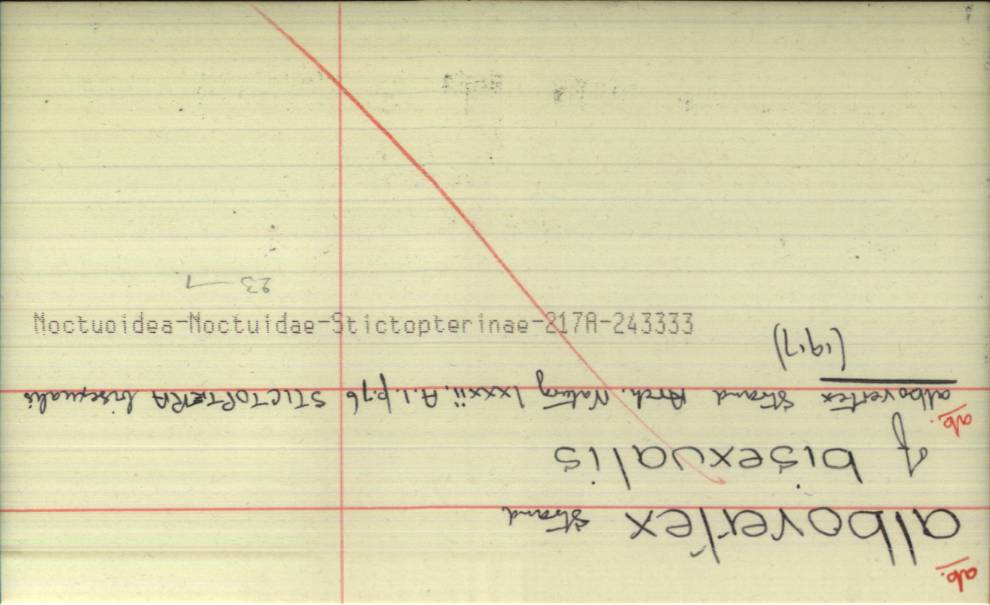 ab.
albovertex Strand
of bisexualis
ab.
albovertex Strand Arch. Naturg lxxxii. A.1. p.76 STICTOPTERA bisexualis
(1917)
Noctuoidea-Noctuidae-Stictopterinae-217A-243333
23